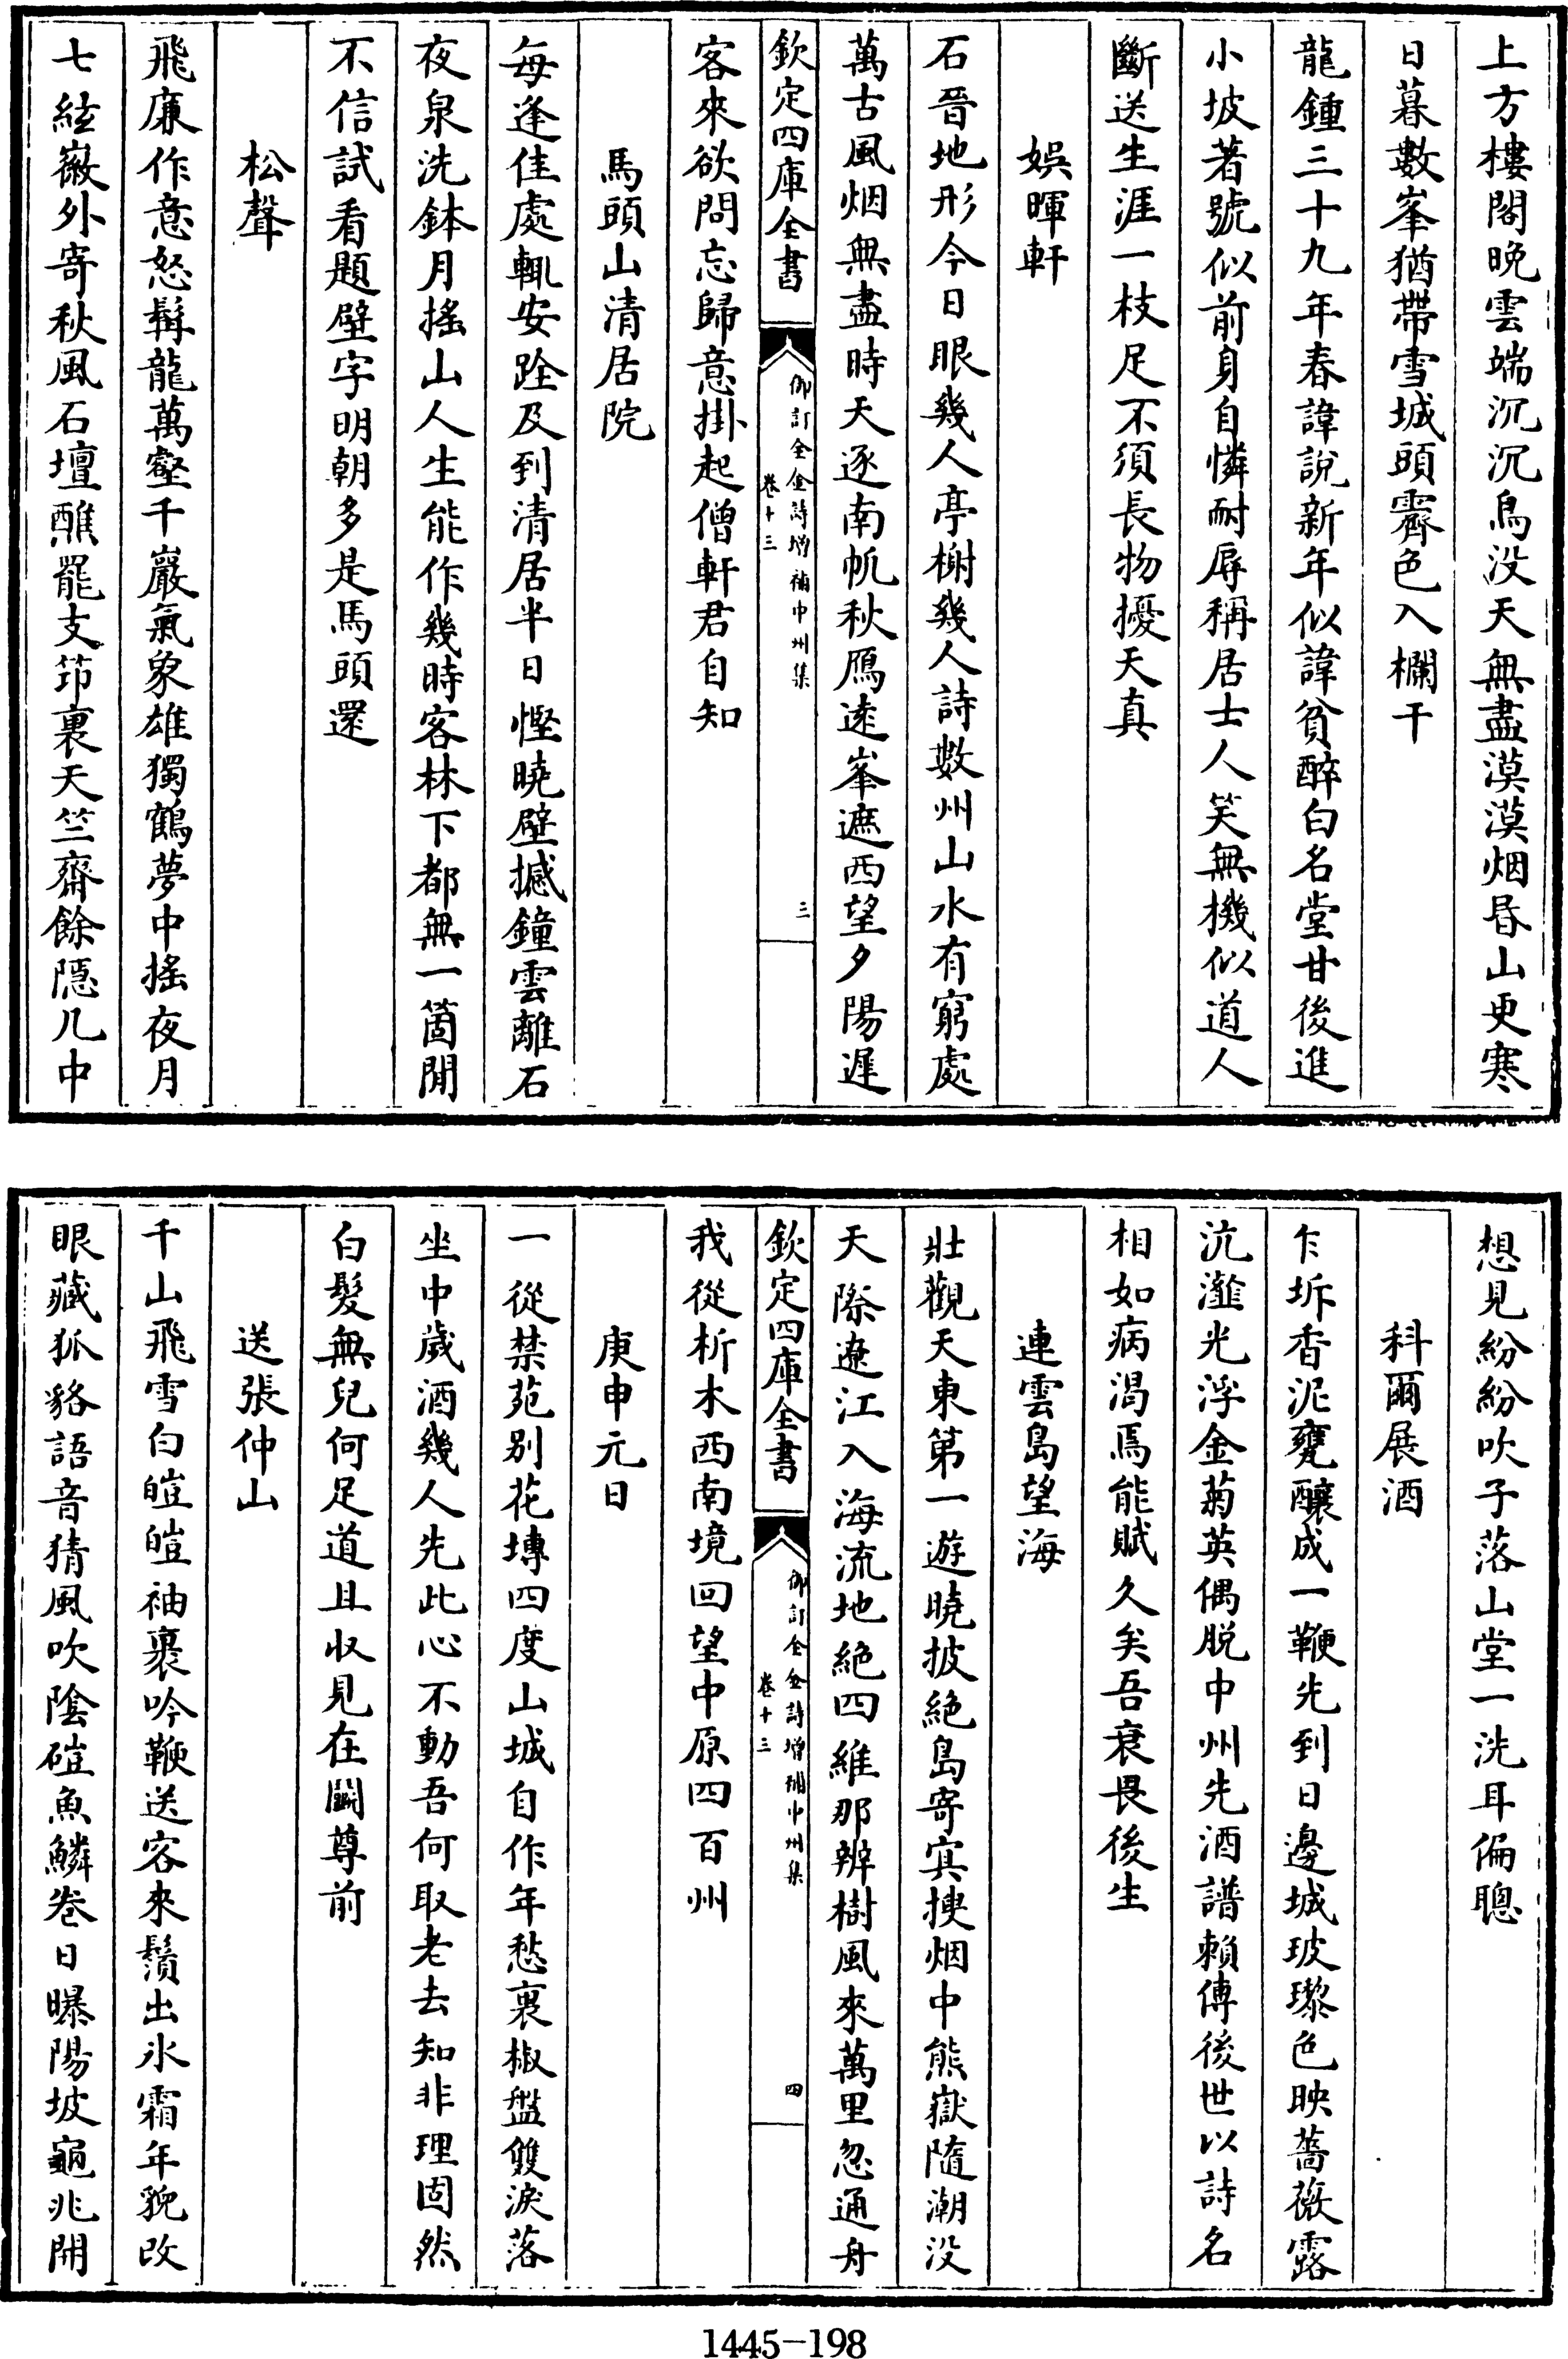 上方樓閣晚雲端沉沉鳥没天無盡漠漠烟昏山更寒
日暮數峯猶帶雪城頭霽色入欄干
龍鍾三十九年春諱說新年似諱貧醉白名堂甘後進
小坡著號似前身自憐耐辱稱居士人笑無機似道人
斷送生涯一枝足不須長物擾天真
娛暉軒
石晉地形今日眼幾人亭榭幾人詩數州山水有窮處
萬古風烟無盡時天逐南帆秋鴈逺峯遮西望夕陽遲
欽定四庫全書
御訂全金詩増補中州集
卷十三
三
客來欲問忘歸意掛起僧軒君自知
馬頭山清居院
每逢佳處輒安跧及到清居半日慳曉壁撼鐘雲離石
夜泉洗鉢月搖山人生能作幾時客林下都無一箇閒
不信試看題壁字明朝多是馬頭還
松聲
飛廉作意怒髯龍萬壑千巖氣象雄獨鶴夢中搖夜月
七絃徽外寄秋風石壇醮罷支筇裏天竺齋餘隱几中
想見紛紛吹子落山堂一洗耳偏聰
科爾展酒
乍坼香泥甕釀成一鞭先到日邊城玻瓈色映薔薇露
沆瀣光浮金菊英偶脱中州先酒譜賴傅後世以詩名
相如病渴焉能賦久矣吾衰畏後生
連雲島望海
壯觀天東第一遊曉披絶島寄冥搜烟中熊嶽隨潮没
天際遼江入海流地絶四維那辨樹風來萬里忽通舟
欽定四庫全書
御訂全金詩増補中州集
卷十三
四
我從析木西南境回望中原四百州
庚申元日
一從禁苑别花塼四度山城自作年愁裏椒盤雙淚落
坐中歲酒幾人先此心不動吾何取老去知非理固然
白髮無兒何足道且収見在鬬尊前
送張仲山
千山飛雪白皚皚袖裹吟鞭送客來鬚出氷霜年貌改
眼藏狐貉語音猜風吹陰磑魚鱗卷日曝陽坡龜兆開
1445-198